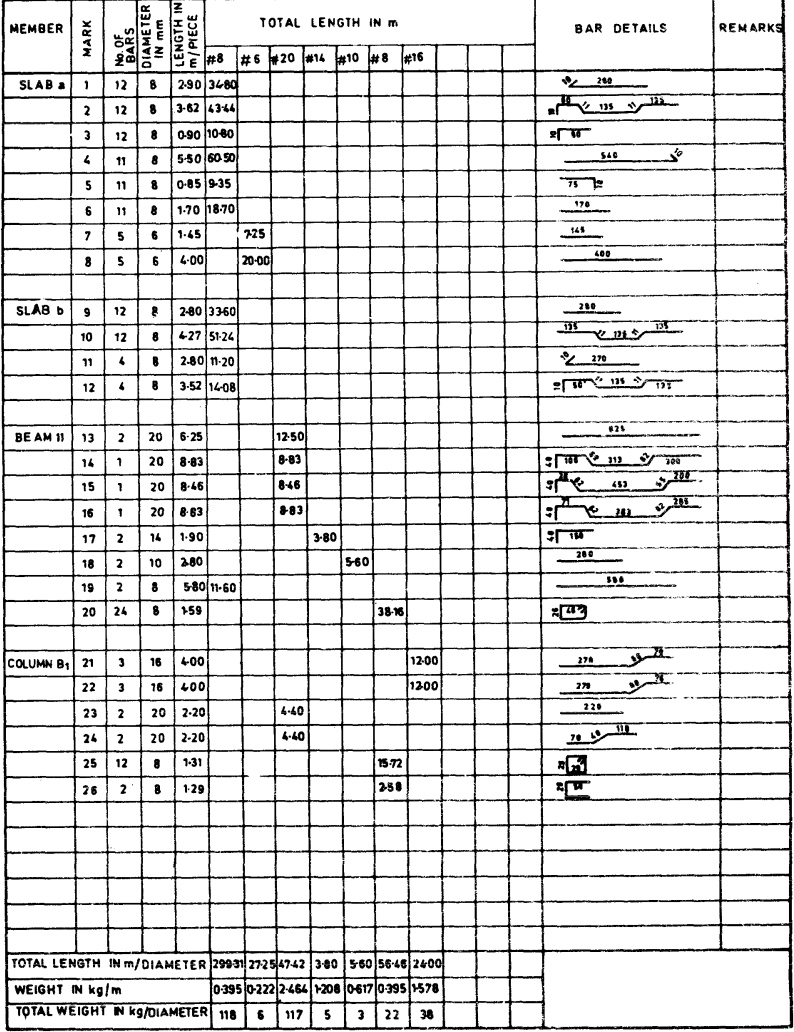 MEMBER MARK No. OF BARS DIAMETER IN mm LENGTH IN m/PIECE TOTAL LENGTH IN m BAR DETAILS REMARKS
#8 #6 #20 #14 #10 #8 #16
SLAB a 1 12 8 2·90 34·80 10 280
2 12 8 3·62 43·44 10 60 11 135 11 125
3 12 8 0·90 10·80 60
4 11 8 5·50 60·50 540 10
5 11 8 0·85 9·35 75 10
6 11 8 1·70 18·70 170
7 5 6 1·45 7·25 145
8 5 6 4·00 20·00 400
SLAB b 9 12 8 2·80 33·60 280
10 12 8 4·27 51·24 135 11 135 11 135
11 4 8 2·80 11·20 10 270
12 4 8 3·52 14·08 10 11 135 11
BEAM 11 13 2 20 6·25 12·50 625
14 1 20 8·83 8·83 40 313 300
15 1 20 8·46 8·46 40 453 200
16 1 20 8·83 8·83 40 71 283 285
17 2 14 1·90 3·80 40 150
18 2 10 2·80 5·60 280
19 2 8 5·80 11·60
20 24 8 1·59 38·16
COLUMN B1 21 3 16 4·00 12·00 270 60 70
22 3 16 4·00 12·00 270 60 70
23 2 20 2·20 4·40 220
24 2 20 2·20 4·40 70 40 110
25 12 8 1·31 15·72
26 2 8 1·29 2·58
TOTAL LENGTH IN m/DIAMETER 299·31 27·25 47·42 3·80 5·60 56·46 24·00
WEIGHT IN kg/m 0·395 0·222 2·464 1·208 0·617 0·395 1·578
TOTAL WEIGHT IN kg/DIAMETER 118 6 117 5 3 22 38